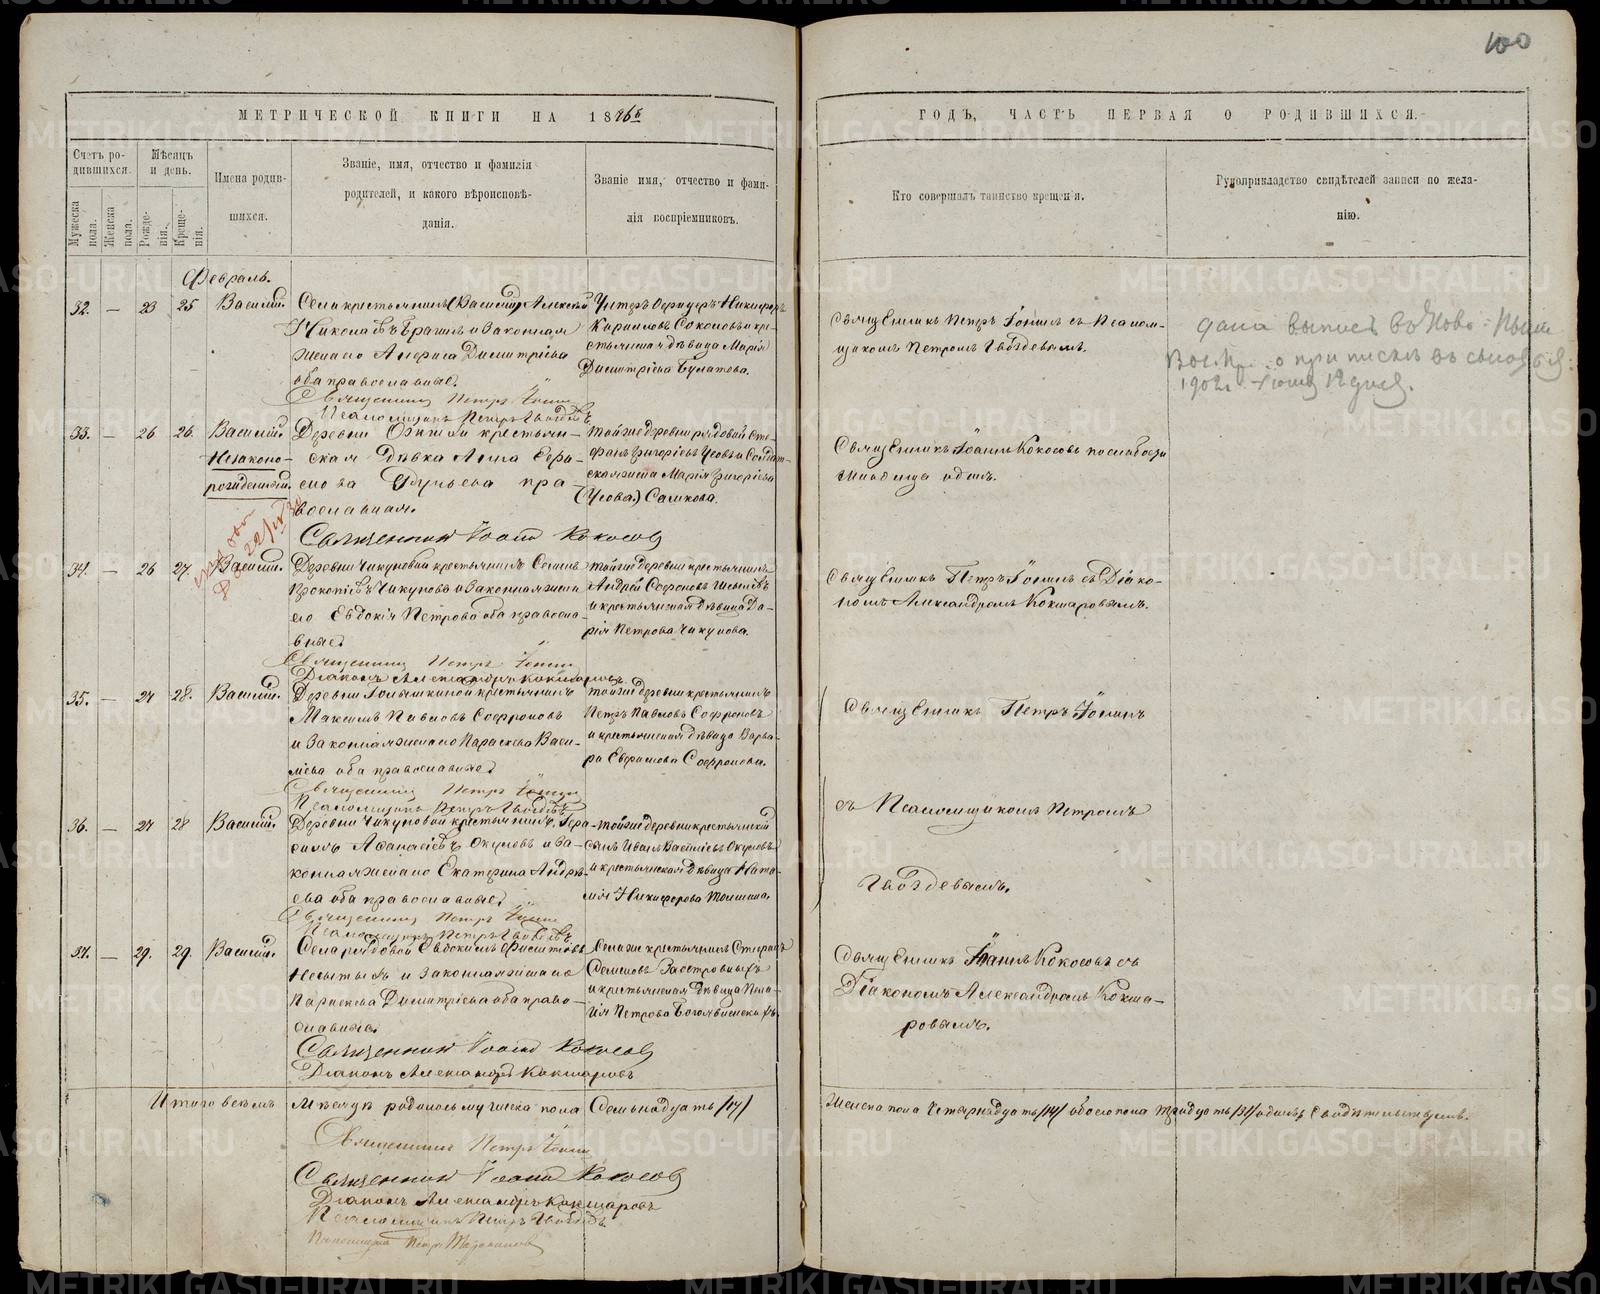 100
МЕТРИЧЕСКОЙ КНИГИ НА 1876й
ГОДЪ, ЧАСТЬ ПЕРВАЯ О РОДИВШИХСЯ.
Счетъ родившихся.
Мужеска пола.
Женска пола.
Мѣсяцъ и день.
Рожденія.
Крещенія.
Имена родившихся.
Званіе, имя, отчество и фамилія
родителей, и какого вѣроисповѣ-
данія.
Званіе имя, отчество и фами-
лія воспріемниковъ.
Кто совершалъ таинство крещенія.
Рукоприкладство свидѣтелей записи по жела-
нію.
Февраль.
32. — 23 25 Василій.
Села крестьянинъ (Василій) Алексѣй
Николаевъ и Законная
жена его Анфиса Димитріева
оба православные.
Священникъ Петръ Іонинъ
Псаломщикъ Петръ Гвоздевъ
Унтеръ Офицеръ Никифоръ
Кирилловъ Соколовъ и кре-
стьянская дѣвица Марія
Димитріева Булатова.
Священникъ Петръ Іонинъ съ Псалом-
щикомъ Петромъ Гвоздевымъ.
дана выпись въ Ново-Пышм
о припискѣ въ
1902 г. Іюня 12 дня.
33. — 26 26. Василій.
Незаконо-
рожденный.
Деревни крестьян-
ская дѣвка Анна
пра-
вославная.
Священникъ Іоаннъ Кокосовъ
Тойже деревни рядовой Сте-
фанъ Григорьевъ Усовъ и Солдат-
ская жена Марія Григорьева
(Усова.) Сашкова.
Священникъ Іоаннъ Кокосовъ по слабости
младенца одинъ.
22/IV 3
34. — 26 27. Василій.
Деревни Чикуновой крестьянинъ Семенъ
Прокопіевъ Чикуновъ и Законная жена
его Евдокія Петрова оба православ-
ные.
Священникъ Петръ Іонинъ
Діаконъ Александръ Кокшаровъ.
Тойже деревни крестьянинъ
Андрей Софроновъ
и крестьянская дѣвица Да-
рія Петрова Чикунова.
Священникъ Петръ Іонинъ съ Діако-
номъ Александромъ Кокшаровымъ.
35. — 27 28. Василій.
Деревни Голышкиной крестьянинъ
Максимъ Павловъ Софроновъ
и Законная жена его Параскева Васи-
лiева оба православные.
Священникъ Петръ Іонинъ
Псаломщикъ Петръ Гвоздевъ
Тойже деревни крестьянинъ
Петръ Павловъ Софроновъ
и крестьянская дѣвица Варва-
ра Софронова.
Священникъ Петръ Іонинъ
съ Псаломщикомъ Петромъ
Гвоздевымъ.
36. — 27 28 Василій.
Деревни Чикуновой крестьянинъ Гера-
симъ Афанасіевъ Окуловъ и За-
конная жена его Екатерина Андре-
ева оба православные.
Священникъ Петръ Іонинъ
Псаломщикъ Петръ Гвоздевъ
Тойже деревни крестьянскій
сынъ Иванъ Васильевъ Окуловъ
и крестьянская дѣвица Ната-
лія Никифорова
37. — 29. 29. Василій.
Села рядовой Евдокимъ Филиповъ
Несытыхъ и Законная жена его
Параскева Димитріева оба право-
славные.
Священникъ Іоаннъ Кокосовъ
Діаконъ Александръ Кокшаровъ
Села же крестьянинъ Стефанъ
Семеновъ Заостровныхъ
и крестьянская дѣвица Пела-
гія Петрова Богоявленскихъ.
Священникъ Іоаннъ Кокосовъ съ
Діакономъ Александромъ Кокша-
ровымъ.
Итого въ семъ Мѣсяцѣ родилось мужеска пола Семьнадцать /17/
Женска пола Четырнадцать /14/ обоего пола Тридцать /31/ одинъ; Свидѣтельствуемъ.
Священникъ Петръ Іонинъ
Священникъ Іоаннъ Кокосовъ
Діаконъ Александръ Кокшаровъ
Псаломщикъ Петръ Гвоздевъ